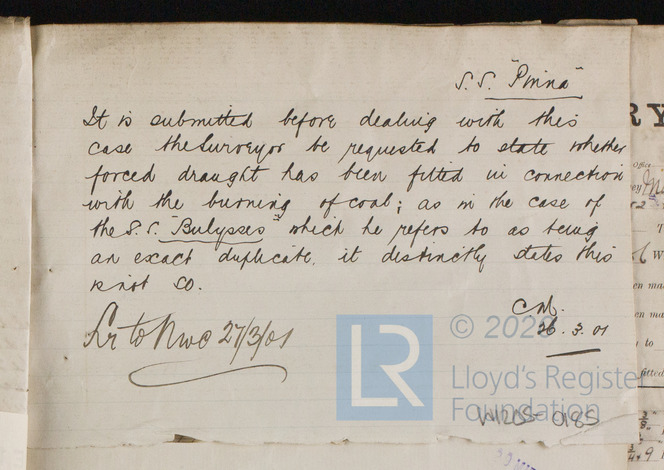 S.S. "Pinna"
It is submitted before dealing with this
case the Surveyor be requested to state whether
forced draught has been fitted in connection
with the burning of coal; as in the case of
the S.S. "Bulysses" which he refers to as being
an exact duplicate, it distinctly states this
is not so.
CM.
26.3.01
Lr to Nwc 27/3/01
LR
© 202
Lloyd's Register
Foundation
W1205-0185
RY